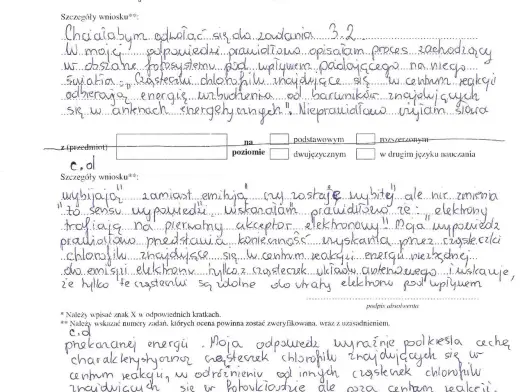 Szczegóły wniosku**:
Chciałabym odwołać się do zadania 3.2.
W mojej odpowiedzi prawidłowo opisałam proces zachodzący
w obszarze fotosystemu pod wpływem padającego na niego
światła: „Cząsteczki chlorofilu znajdujące się w centrum reakcji
odbierają energię wzbudzenia od barwników znajdujących
się w antenach energetycznych". Nieprawidłowo użyłam słowa
z (przedmiot) na poziomie podstawowym rozszerzonym
dwujęzycznym w drugim języku nauczania
c.d
Szczegóły wniosku**:
„wybijają" zamiast „emitują" czy „zostaję wybite" ale nie zmienia
to sensu wypowiedzi, wskazałam prawidłowo że: „elektrony
trafiają na pierwotny akceptor elektronowy". Moja wypowiedz
prawidłowo przedstawia konieczność uzyskania przez cząsteczki
chlorofilu znajdujące się w centrum reakcji energii niezbędnej
do emisji elektronu tylko z cząsteczek układu antenowego i wskazuje,
że tylko te cząsteczki są zdolne do utraty elektronu pod wpływem
podpis absolwenta
* Należy wpisać znak X w odpowiednich kratkach.
** Należy wskazać numery zadań, których ocena powinna zostać zweryfikowana, wraz z uzasadnieniem.
c.d
przekazanej energii. Moja odpowiedz wyraźnie podkreśla cechę
charakterystyczną cząsteczek chlorofilu znajdujących się w
centrum reakcji, w odróżnieniu od innych cząsteczek chlorofilu
znajdujących się w fotoukładzie ale poza centrum reakcji.